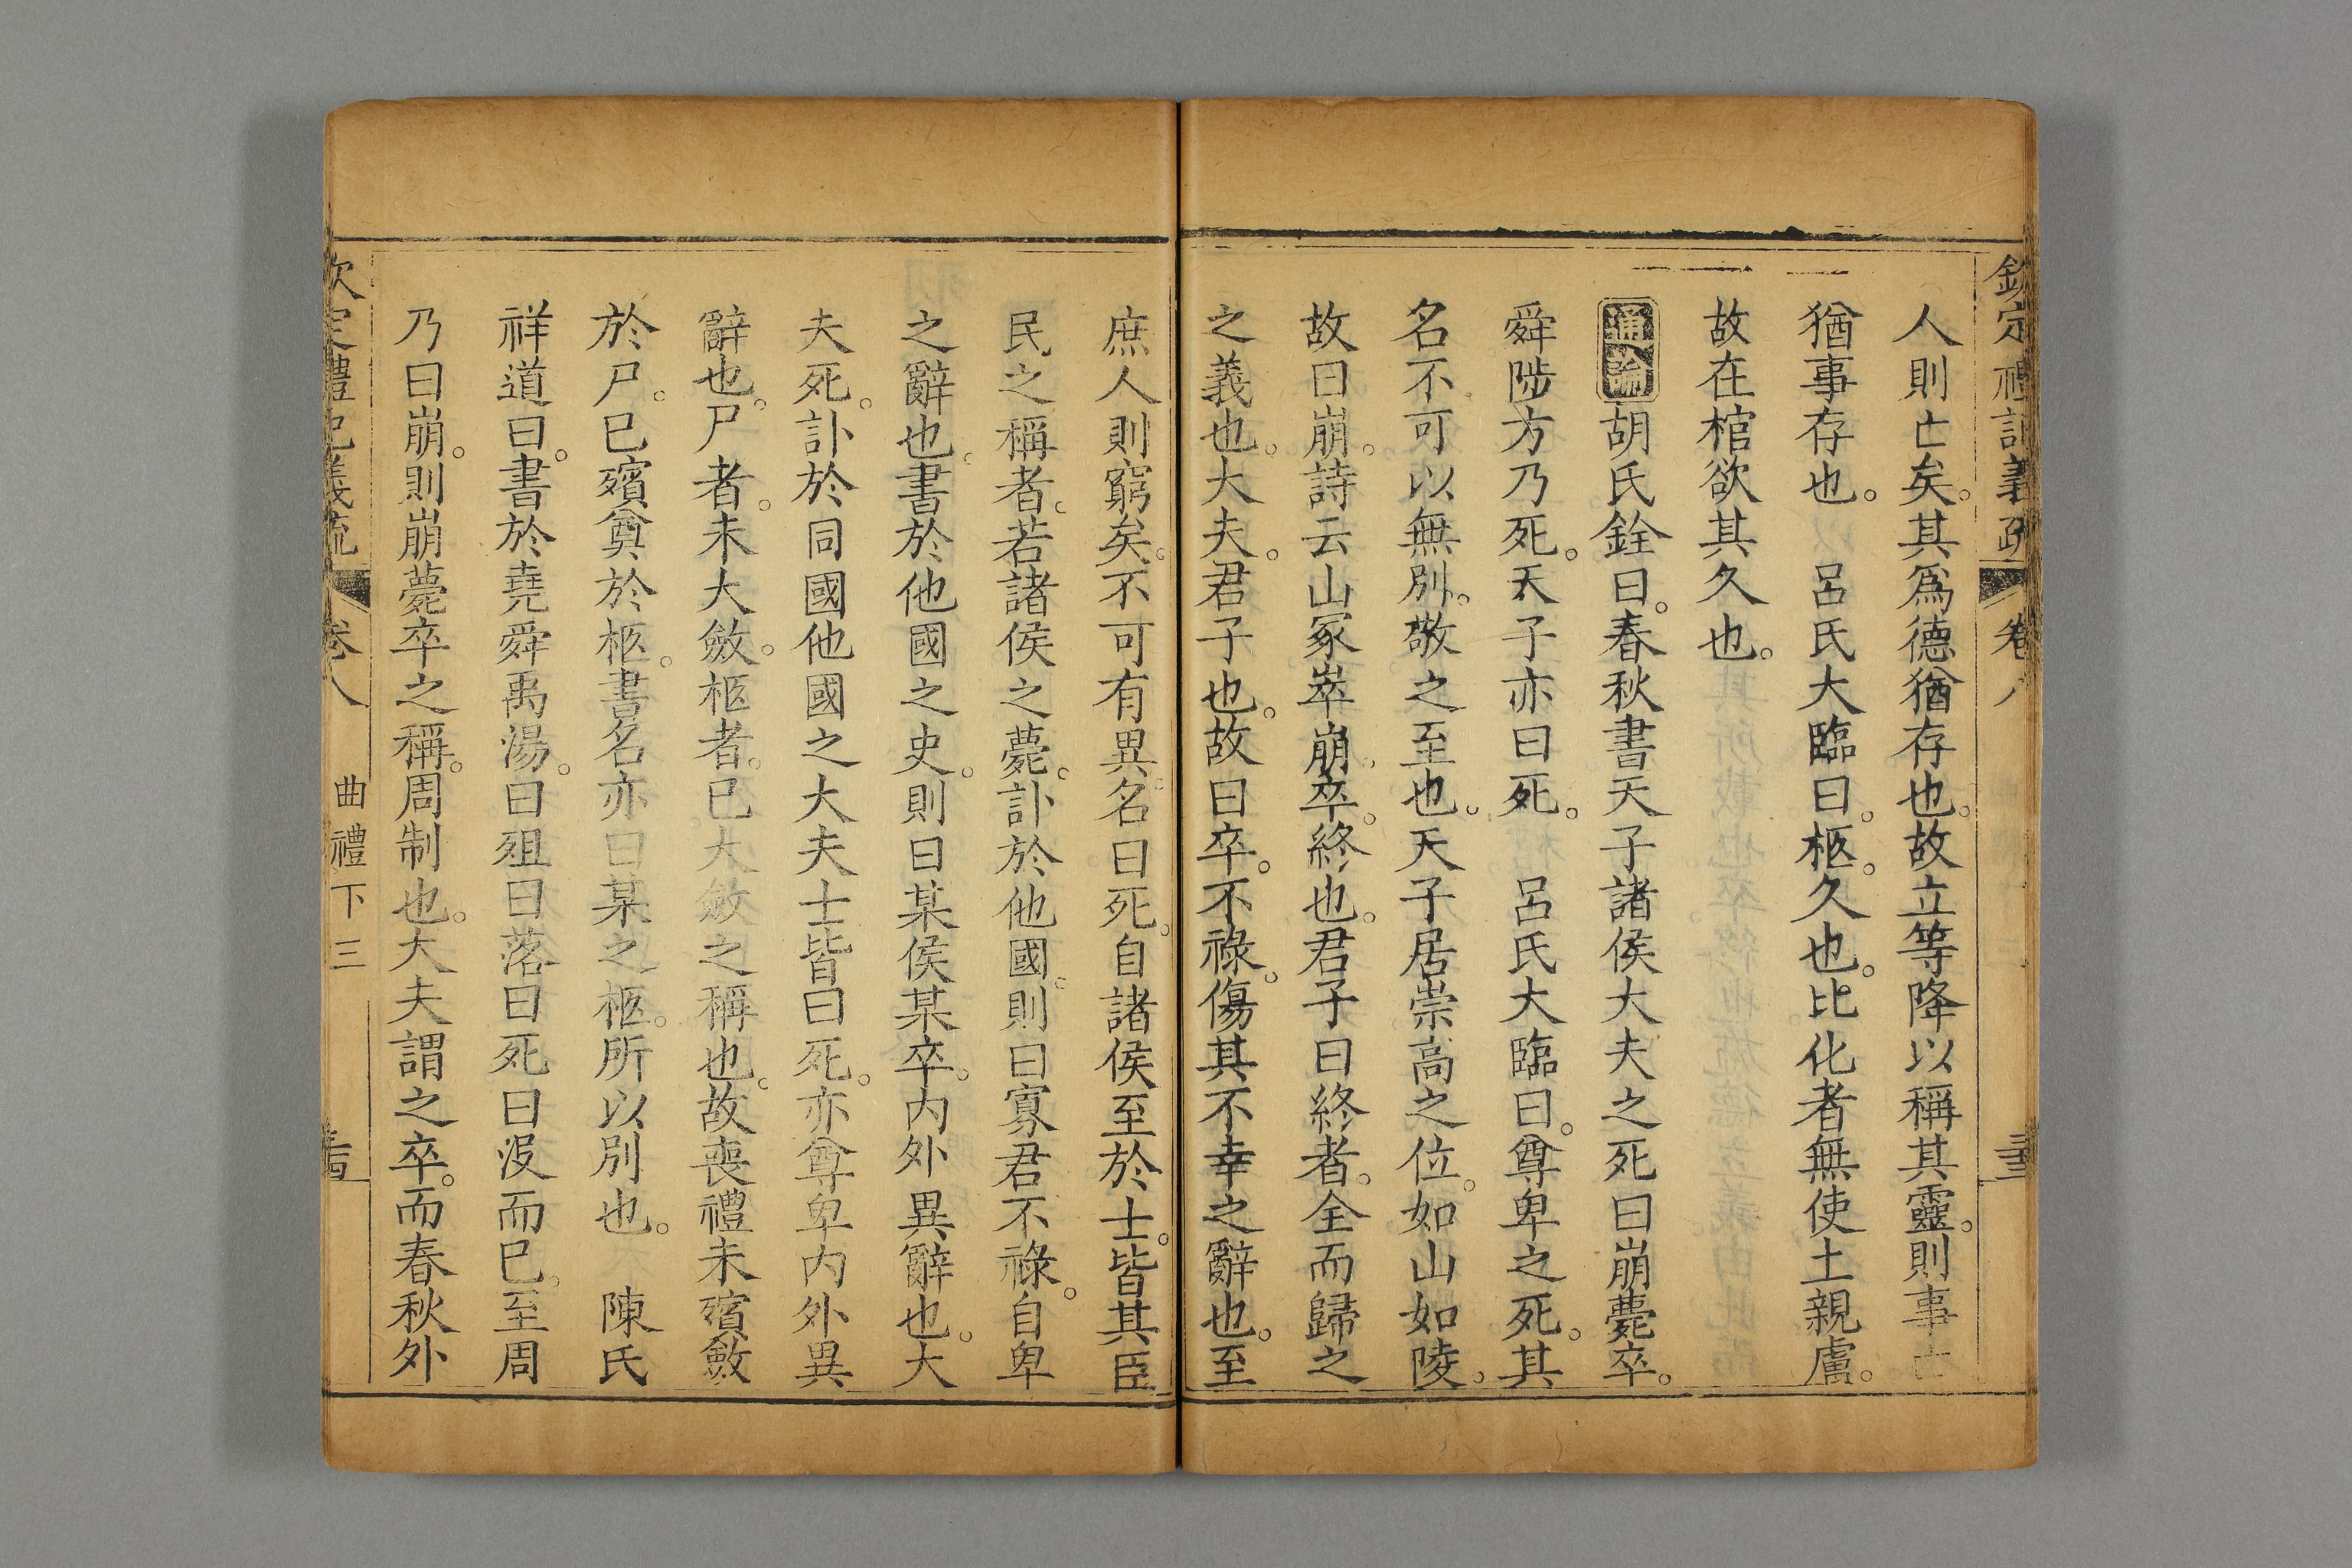 欽定禮記義疏 卷八
人則亡矣。其爲德猶存也。故立等降以稱其靈。則事亡
猶事存也。 呂氏大臨曰。柩。久也。比化者無使土親膚。
故在棺欲其久也。
通論 胡氏銓曰。春秋書天子諸侯大夫之死曰崩薨卒。
舜陟方乃死。天子亦曰死。 呂氏大臨曰。尊卑之死。其
名不可以無別。敬之至也。天子居崇高之位。如山如陵。
故曰崩。詩云山冢崒崩。卒。終也。君子曰終者。全而歸之
之義也。大夫。君子也。故曰卒。不祿。傷其不幸之辭也。至
庶人則窮矣。不可有異名。曰死。自諸侯至於士。皆其臣
民之稱者。若諸侯之薨。訃於他國。則曰寡君不祿。自卑
之辭也。書於他國之史。則曰某侯某卒。内外異辭也。大
夫死。訃於同國他國之大夫士皆曰死。亦尊卑内外異
辭也。尸者。未大斂。柩者。已大斂之稱也。故喪禮未殯斂
於尸。已殯奠於柩。書名亦曰某之柩。所以別也。 陳氏
祥道曰。書於堯舜禹湯。曰殂曰落曰死曰沒而已。至周
乃曰崩。則崩薨卒之稱。周制也。大夫謂之卒。而春秋外
欽定禮記義疏 卷八 曲禮下三